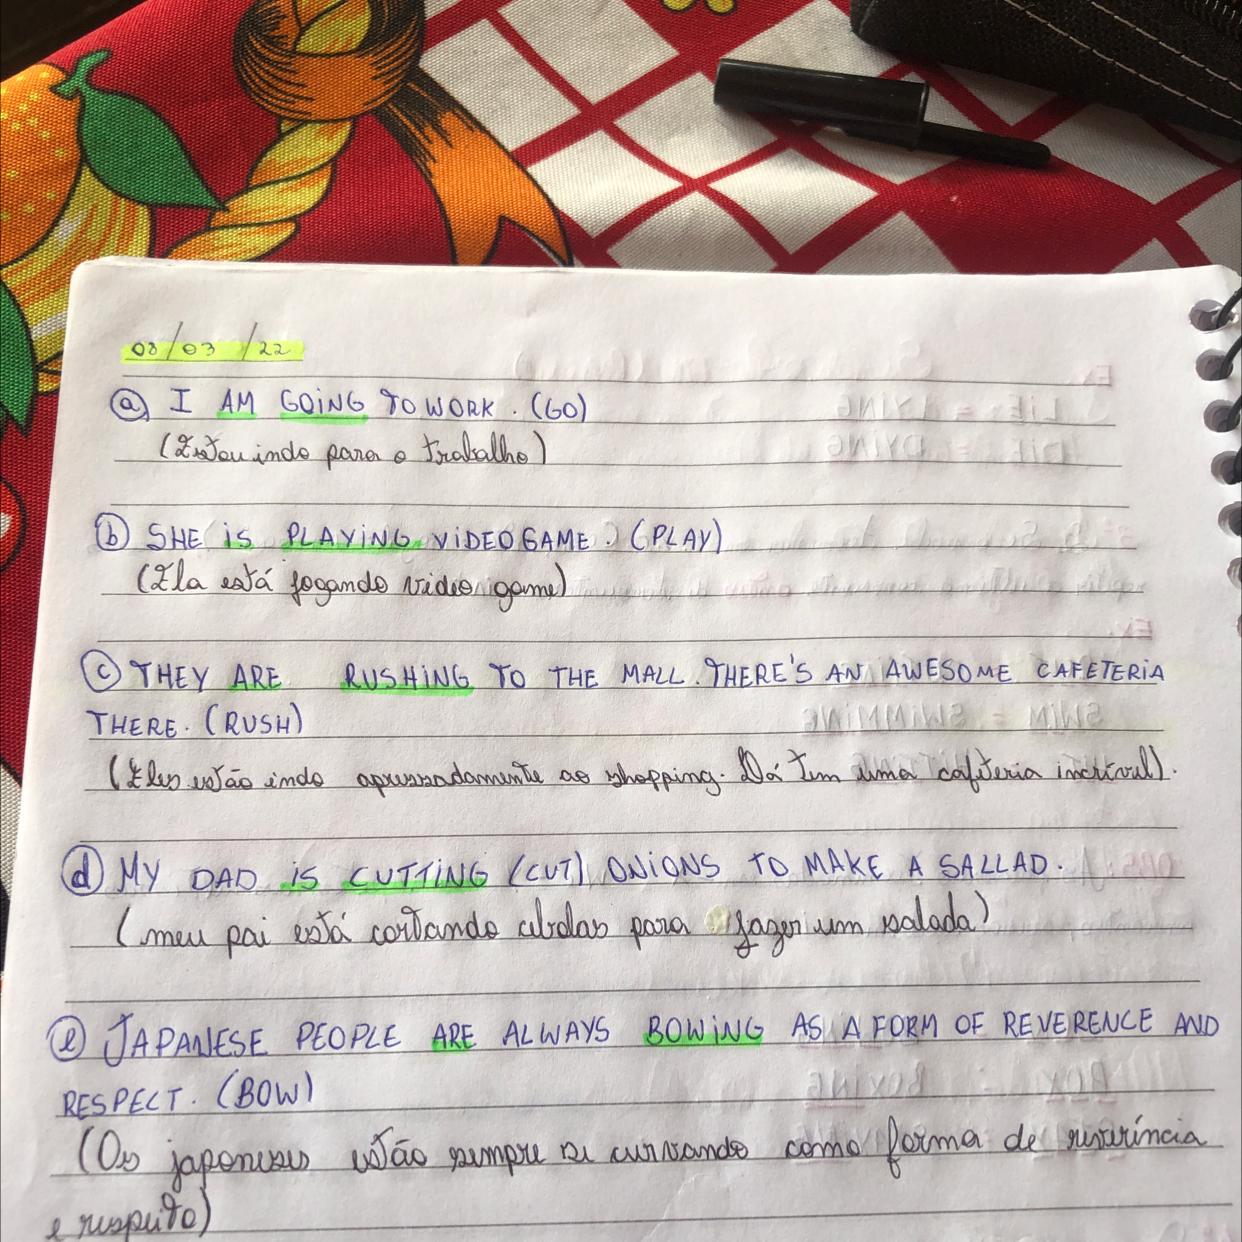 08/03/22
a) I AM GOING TO WORK. (GO)
(Estou indo para o trabalho)
b) SHE IS PLAYING VIDEO GAME. (PLAY)
(Ela está jogando video game)
c) THEY ARE RUSHING TO THE MALL. THERE'S AN AWESOME CAFETERIA
THERE. (RUSH)
(Eles estão indo apressadamente ao shopping. Lá tem uma cafeteria incrível).
d) MY DAD IS CUTTING (CUT) ONIONS TO MAKE A SALLAD.
(meu pai está cortando cebolas para fazer um salada)
e) JAPANESE PEOPLE ARE ALWAYS BOWING AS A FORM OF REVERENCE AND
RESPECT. (BOW)
(Os japoneses estão sempre se curvando como forma de reverência
e respeito)